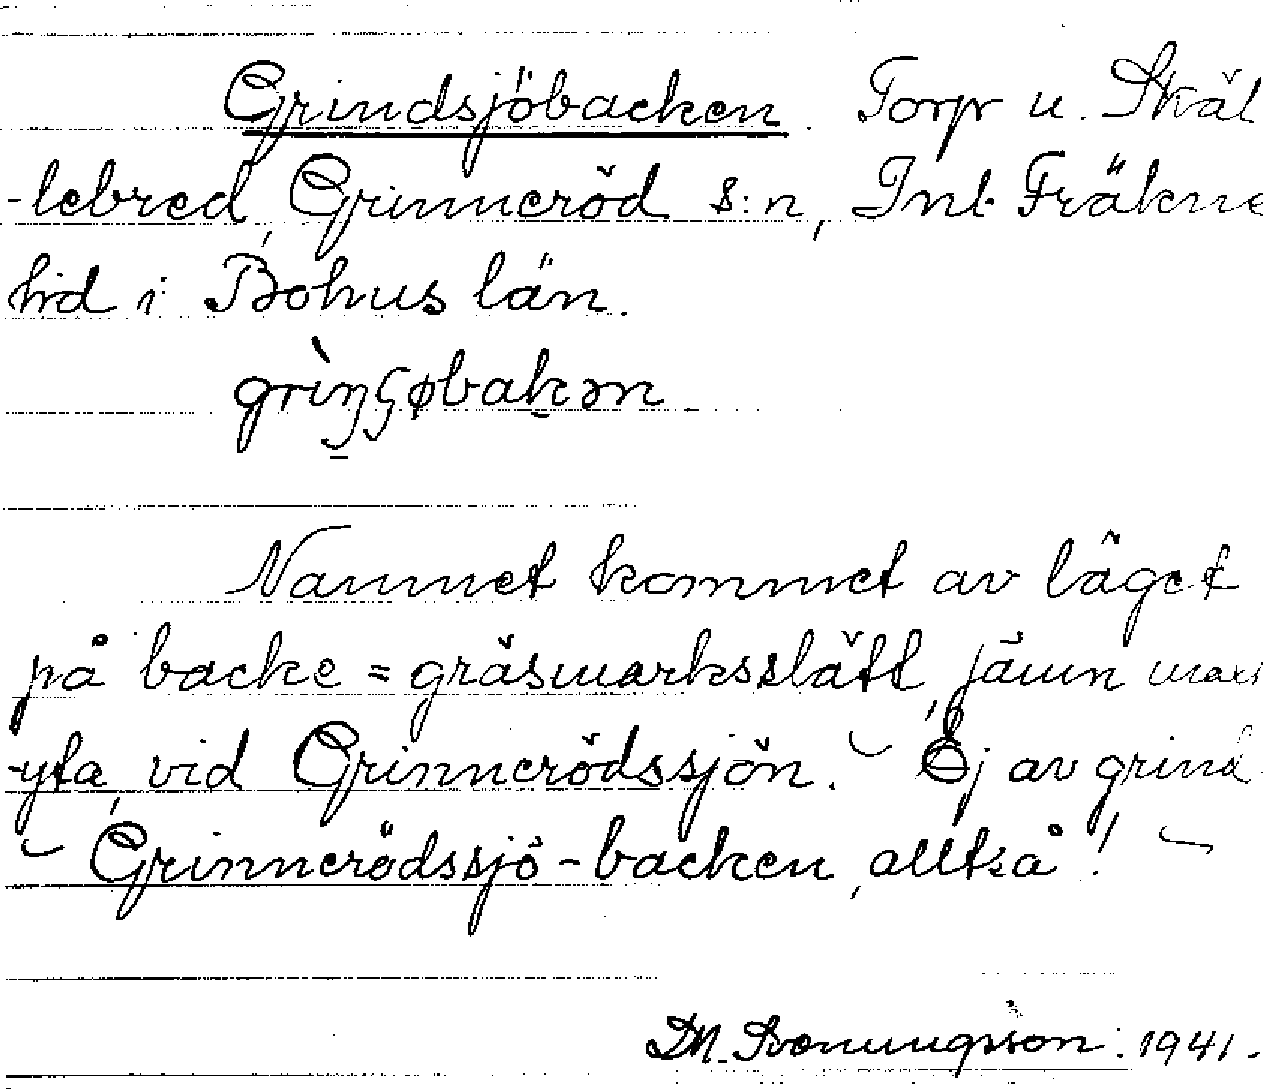 Grindsjöbacken. Torp u. Skäl
-lebred, Grinneröd s:n, Inl. Fräkne
hd i Bohus län.
grìŋʂøbakən
Namnet kommet av läget
på backe = gräsmarksslätt, jämn mark
-yta, vid Grinnerödssjön. – Ej av grind
– Grinnerödssjö-backen, alltså! –
D.M. Svenungsson. 1941.